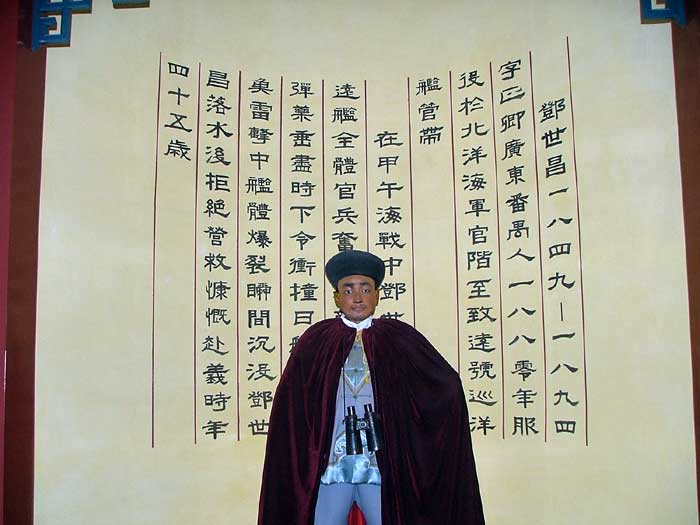 鄧世昌一八四九—一八九四
字正卿廣東番禺人一八八零年服
役於北洋海軍官階至致遠號巡洋
艦管帶
在甲午海戰中鄧世
遠艦全體官兵奮
彈藥垂盡時下令衝撞日
魚雷擊中艦體爆裂瞬間沉沒鄧世
昌落水後拒絕營救慷慨赴義時年
四十五歲